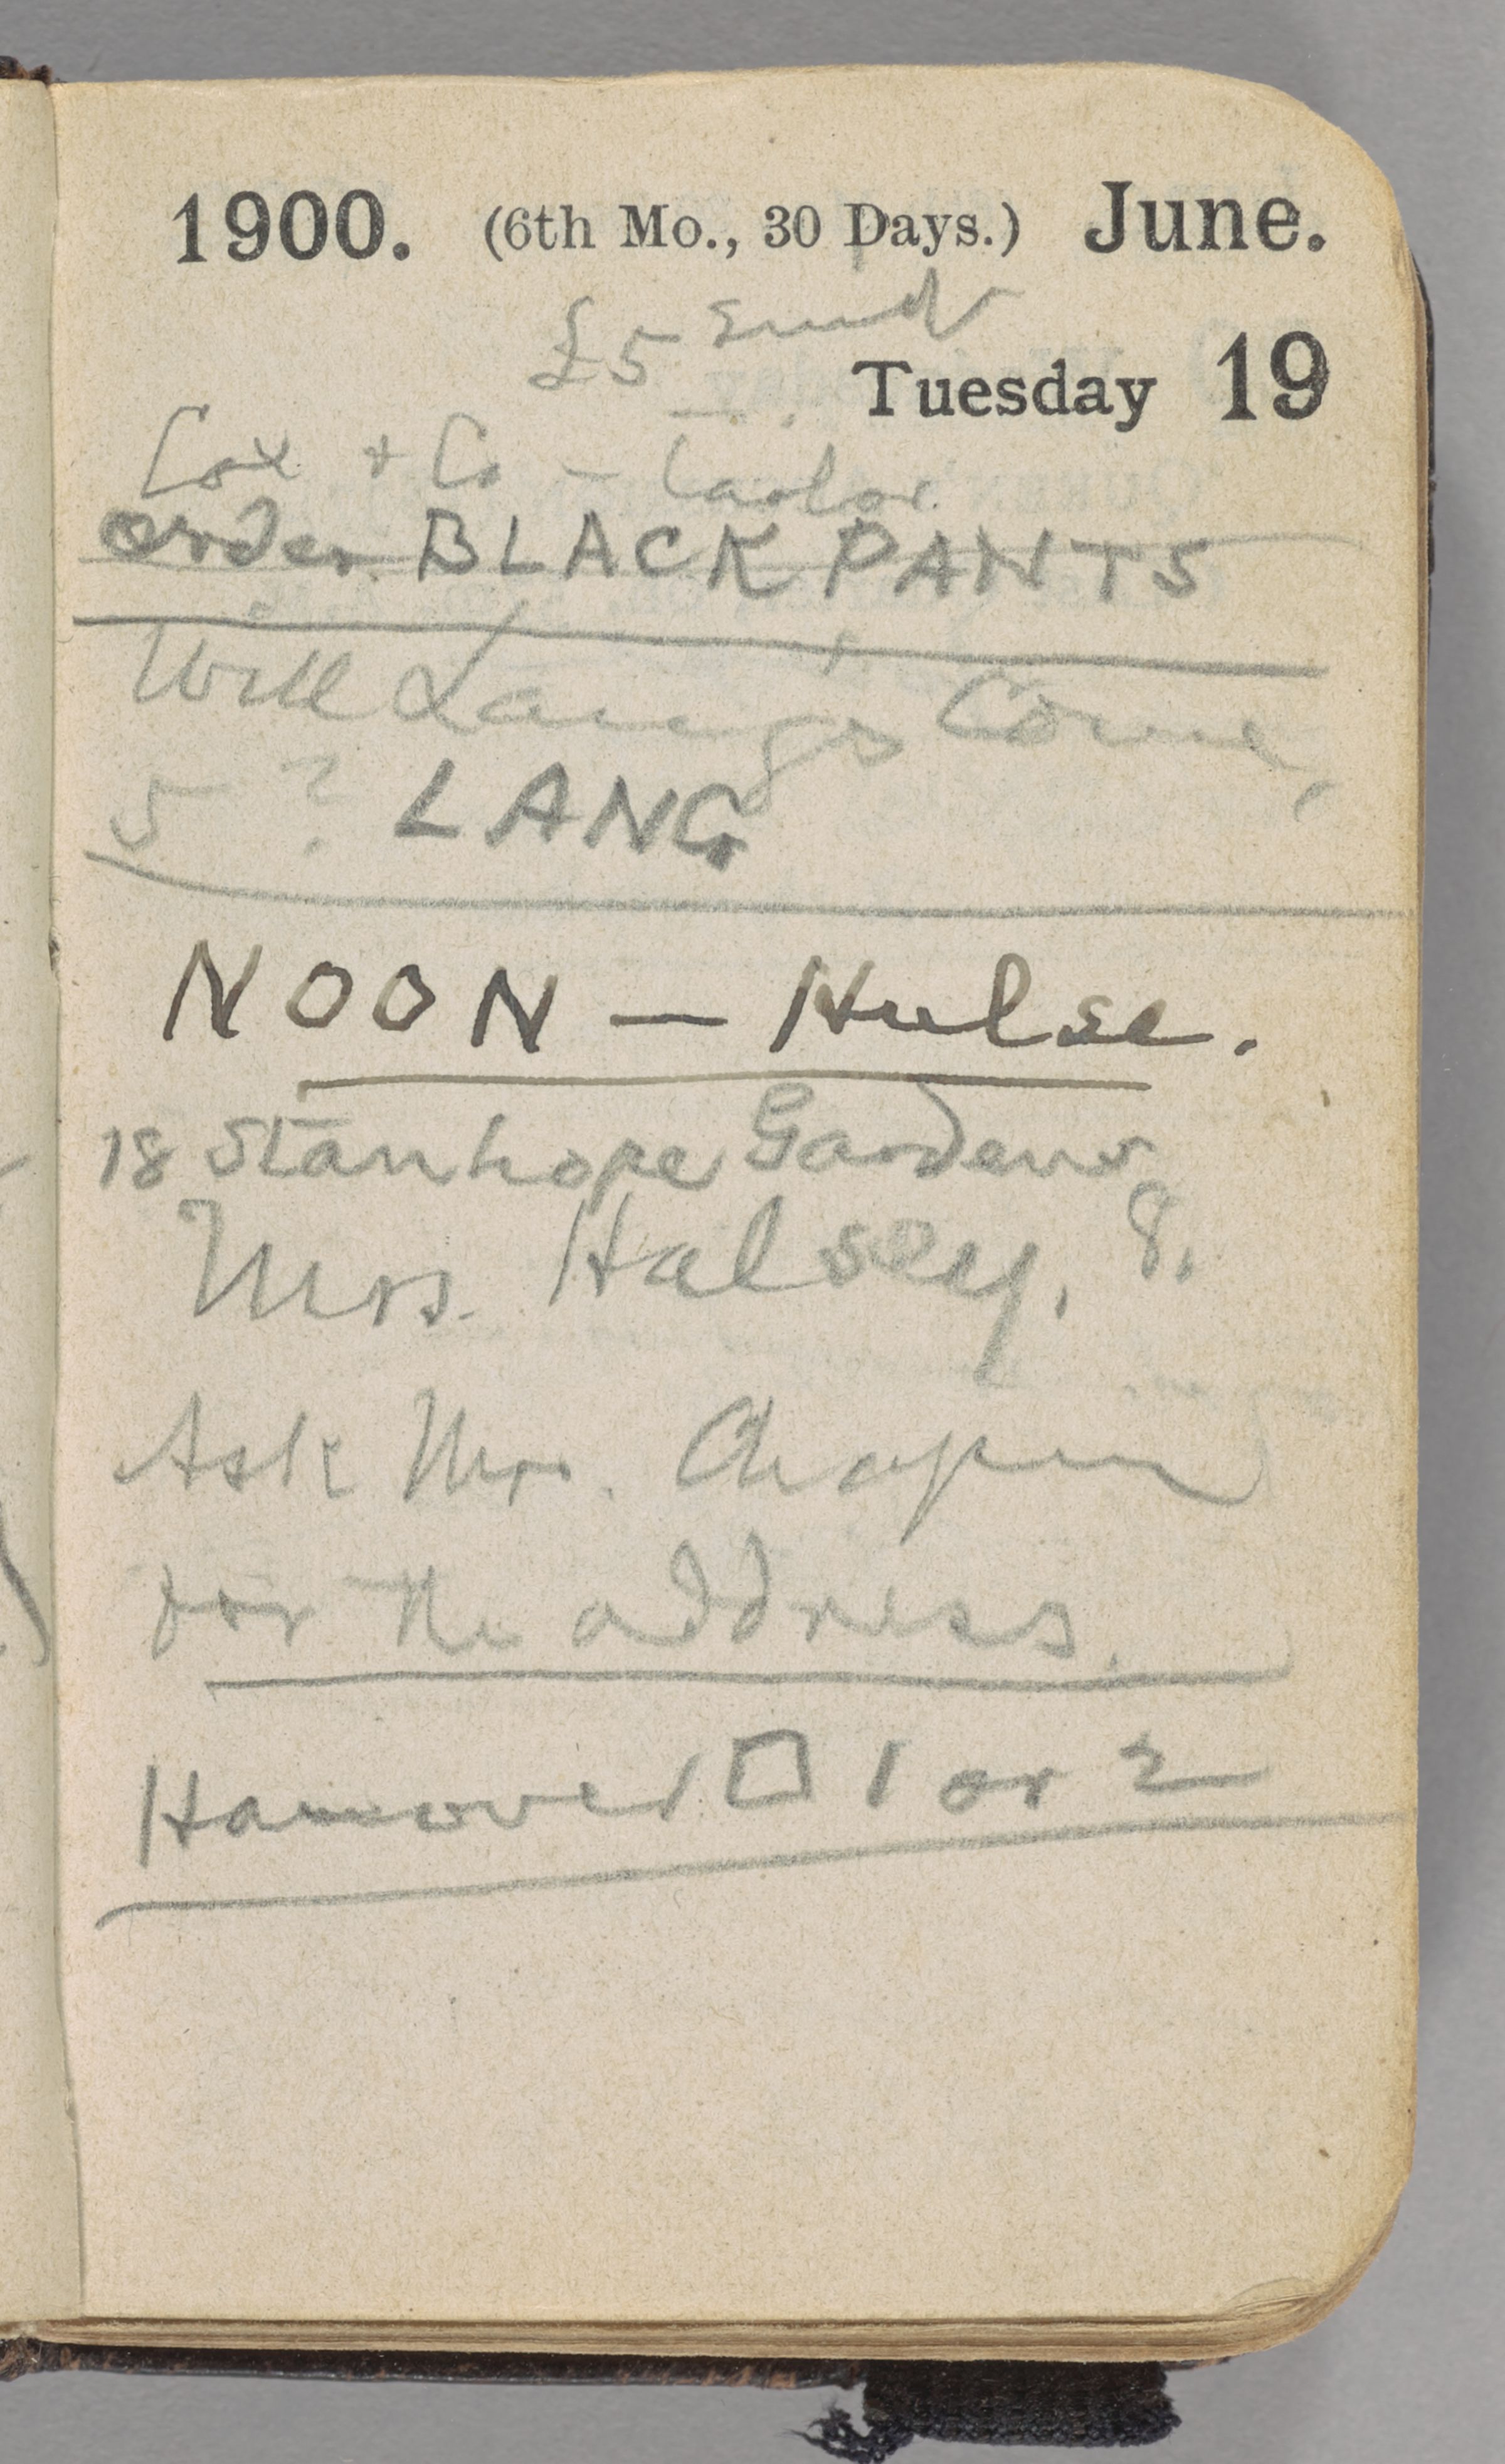 1900. (6th Mo., 30 Days.) June.
£5
Tuesday 19
Cox + Co - tailor.
order BLACK PANTS
Will Langs Come,
5 ? LANG
NOON — Hulse.
18 Stanhope Gardens
Mrs. Halsey. 8.
Ask Mrs. Chapin
for the address.
Hanover □ 1 or 2